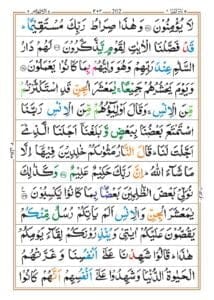 لَا يُؤْمِنُوْنَ ۝ وَهٰذَا صِرَاطُ رَبِّكَ مُسْتَقِيْمًا ؕ
قَدْ فَصَّلْنَا الْاٰيٰتِ لِقَوْمٍ يَّذَّكَّرُوْنَ ۝ لَهُمْ دَارُ
السَّلٰمِ عِنْدَ رَبِّهِمْ وَهُوَ وَلِيُّهُمْ بِمَا كَانُوْا يَعْمَلُوْنَ ۝
وَيَوْمَ يَحْشُرُهُمْ جَمِيْعًا ۚ يٰمَعْشَرَ الْجِنِّ قَدِ اسْتَكْثَرْتُمْ
مِّنَ الْاِنْسِ ۚ وَقَالَ اَوْلِيٰٓـُٔهُمْ مِّنَ الْاِنْسِ رَبَّنَا
اسْتَمْتَعَ بَعْضُنَا بِبَعْضٍ وَّبَلَغْنَاۤ اَجَلَنَا الَّذِيْۤ
اَجَّلْتَ لَنَا ؕ قَالَ النَّارُ مَثْوٰىكُمْ خٰلِدِيْنَ فِيْهَاۤ اِلَّا
مَا شَآءَ اللّٰهُ ؕ اِنَّ رَبَّكَ حَكِيْمٌ عَلِيْمٌ ۝ وَكَذٰلِكَ
نُوَلِّيْ بَعْضَ الظّٰلِمِيْنَ بَعْضًۢا بِمَا كَانُوْا يَكْسِبُوْنَ ۝
يٰمَعْشَرَ الْجِنِّ وَالْاِنْسِ اَلَمْ يَاْتِكُمْ رُسُلٌ مِّنْكُمْ
يَقُصُّوْنَ عَلَيْكُمْ اٰيٰتِيْ وَيُنْذِرُوْنَكُمْ لِقَآءَ يَوْمِكُمْ
هٰذَا ؕ قَالُوْا شَهِدْنَا عَلٰۤى اَنْفُسِنَا وَغَرَّتْهُمُ
الْحَيٰوةُ الدُّنْيَا وَشَهِدُوْا عَلٰۤى اَنْفُسِهِمْ اَنَّهُمْ كَانُوْا